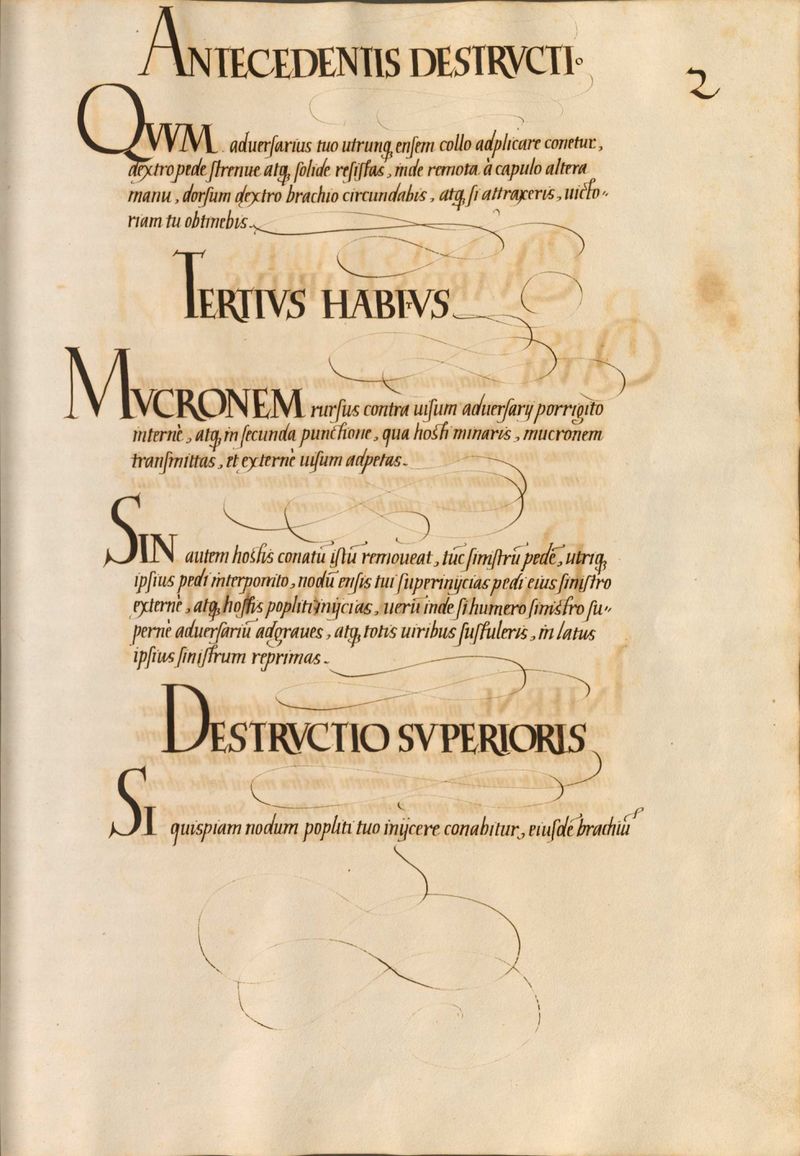 ANTECEDENTIS DESTRVCTIo
2
QWM aduerſarius tuo utrunq, enſem collo adplicare conetur,
dextro pede ſtrenue atq, ſolide reſiſtas, inde remota à capulo altera
manu, dorſum dextro brachio circundabis, atq, ſi attraxeris, uicto-
riam tu obtinebis.
TERTIVS HABITVS
MVCRONEM rurſus contra uiſum aduerſarij porrigito
internè, atq, in ſecunda punctione, qua hoſti minaris, mucronem
tranſmittas, et externè uiſum adpetas.
SIN autem hoſtis conatū iſtū remoueat, tūc ſiniſtrū pedē, utriq,
ipſius pedi interponito, nodū enſis tui ſuperinijcias pedi eius ſiniſtro
externè, atq, hoſtis popliti inijcias, uerū inde ſi humero ſiniſtro ſu-
pernè aduerſariū adgraues, atq, totis uiribus ſuſtuleris, in latus
ipſius ſiniſtrum reprimas.
DESTRVCTIO SVPERIORIS
SI quispiam nodum popliti tuo inijcere conabitur, eiuſdē brachiū